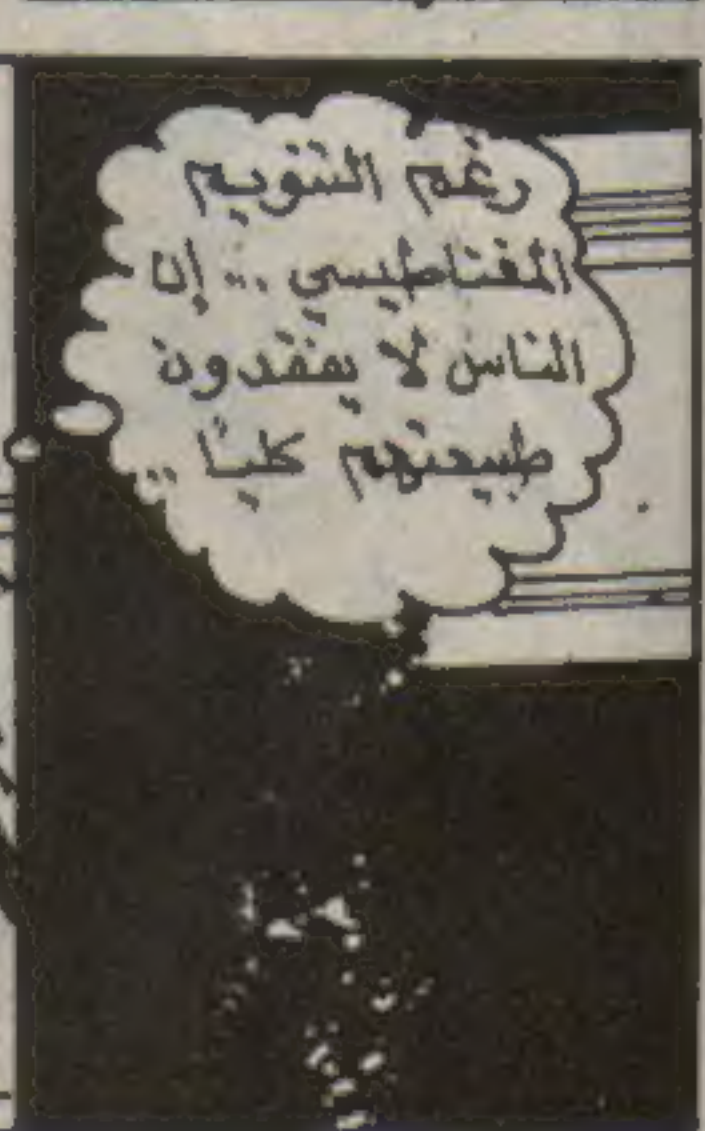 رغم التنويم
المغناطيسي .. إن
الناس لا يفقدون
طبيعتهم كليًا ..